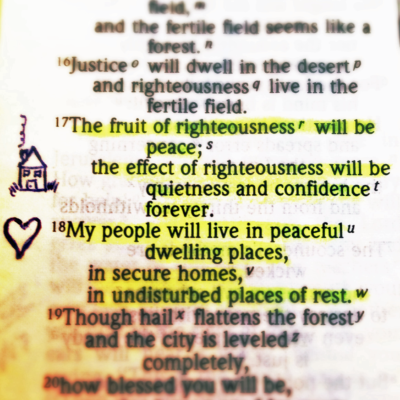 field, m
and the fertile field seems like a
forest. n
16Justice o will dwell in the desert p
and righteousness q live in the
fertile field.
17The fruit of righteousness r will be
peace; s
the effect of righteousness will be
quietness and confidence t
forever.
18My people will live in peaceful u
dwelling places,
in secure homes, v
in undisturbed places of rest. w
19Though hail x flattens the forest y
and the city is leveled z
completely,
20how blessed you will be,